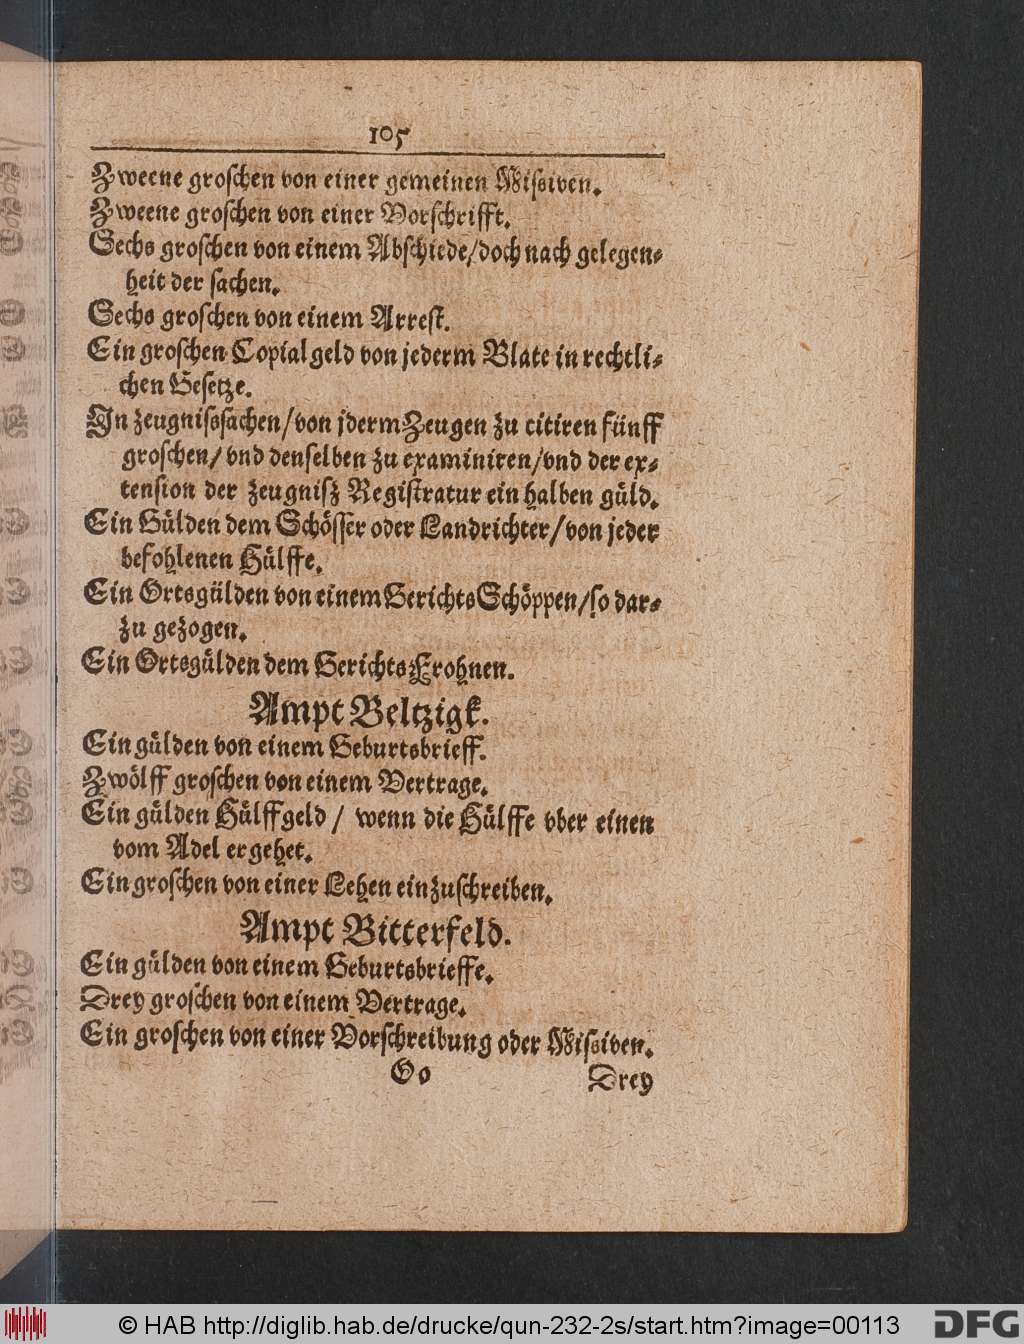 105
Zweene groschen von einer gemeinen Missiven.
Zweene groschen von einer Vorschrifft.
Sechs groschen von einem Abschiede/doch nach gelegen-
heit der sachen.
Sechs groschen von einem Arrest.
Ein groschen Copialgeld von jederm Blate in rechtli-
chen Gesetze.
In zeugnissachen/von jderm Zeugen zu citiren fünff
groschen/vnd denselben zu examiniren/vnd der ex-
tension der zeugnisz Registratur ein halben güld.
Ein Gülden dem Schösser oder Landrichter/von jeder
befohlenen Hülffe.
Ein Ortsgülden von einem Gerichts Schöppen/so dar-
zu gezogen.
Ein Ortsgülden dem Gerichts Frohnen.
Ampt Beltzigk.
Ein gülden von einem Geburtsbrieff.
Zwölff groschen von einem Vertrage.
Ein gülden Hülffgeld / wenn die Hülffe vber einen
vom Adel ergehet.
Ein groschen von einer Lehen einzuschreiben.
Ampt Bitterfeld.
Ein gülden von einem Geburtsbrieffe.
Drey groschen von einem Vertrage.
Ein groschen von einer Vorschreibung oder Missiven.
Oo Drey
© HAB http://diglib.hab.de/drucke/qun-232-2s/start.htm?image=00113
DFG